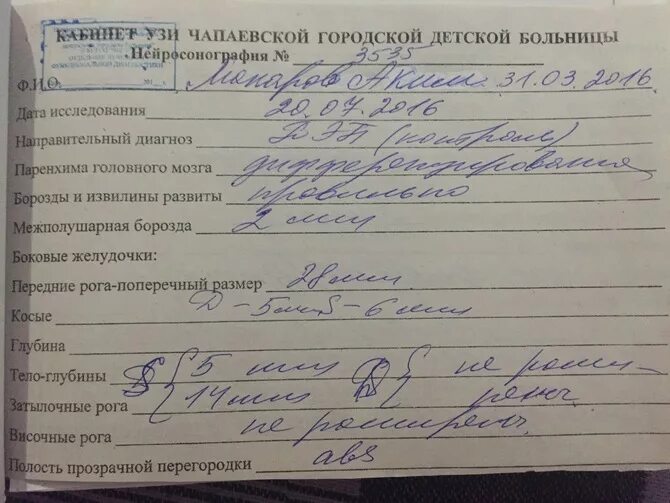 КАБИНЕТ УЗИ ЧАПАЕВСКОЙ ГОРОДСКОЙ ДЕТСКОЙ БОЛЬНИЦЫ
Нейросонография № 3535
Ф.И.О. Макаров Аким 31.03.2016
Дата исследования 20.07.2016
Направительный диагноз (контроль)
Паренхима головного мозга дифференцирована
Борозды и извилины развиты правильно
Межполушарная борозда 2 мм
Боковые желудочки:
Передние рога-поперечный размер 28 мм
Косые D - 5 мм S - 6 мм
Глубина
Тело-глубины 5 мм не расши-
Затылочные рога 14 мм рены
Височные рога не расширены
Полость прозрачной перегородки abs